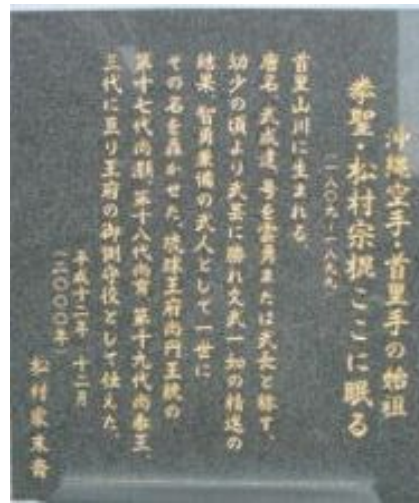 沖縄空手・首里手の始祖
拳聖・松村宗棍ここに眠る
(一八〇九~一八九九)
首里山川に生まれる。
唐名、武成達、号を雲勇または武長と称す。
幼少の頃より武芸に勝れ文武一如の精進の
結果、智勇兼備の武人として一世に
その名を轟かせた。琉球王府尚円王統の
第十七代尚灝、第十八代尚育、第十九代尚泰王、
三代に亘り王府の御側守役として仕えた。
平成十二年 十二月
(二〇〇〇年)
松村家末裔